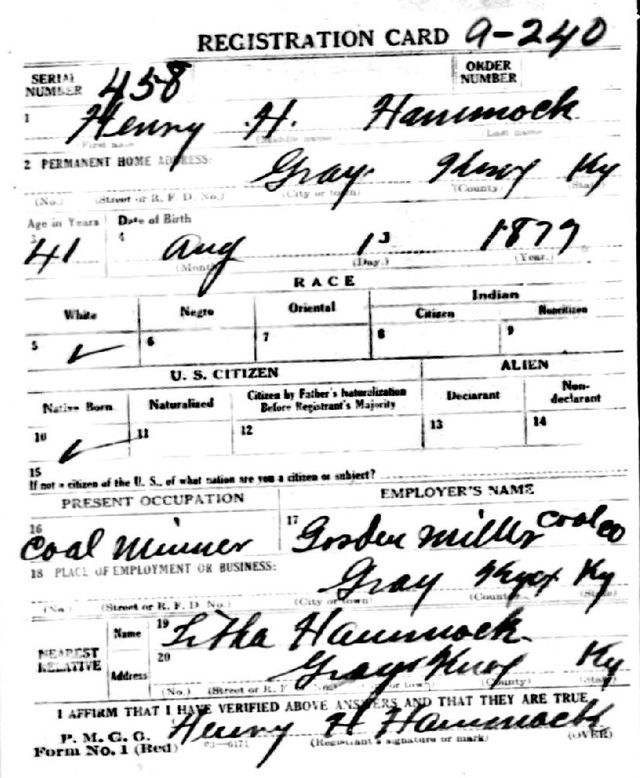 REGISTRATION CARD 9-240
SERIAL NUMBER 458 ORDER NUMBER
1 Henry H. Hammock
First name (Middle name) Last name
2 PERMANENT HOME ADDRESS: Gray Knox Ky
(No.) (Street or R. F. D. No.) (City or town) (County) (State)
Age in Years Date of Birth
3 41 4 Aug 13 1879
(Month) (Day.) (Year.)
RACE
White Negro Oriental Indian
Citizen Noncitizen
5 ✓ 6 7 8 9
U. S. CITIZEN ALIEN
Native Born Naturalized Citizen by Father's Naturalization Before Registrant's Majority Declarant Non-declarant
10 ✓ 11 12 13 14
15
If not a citizen of the U. S., of what nation are you a citizen or subject?
PRESENT OCCUPATION EMPLOYER'S NAME
16 Coal Minner 17 Miller Coal Co
18 PLACE OF EMPLOYMENT OR BUSINESS:
Gray Knox Ky
(No.) (Street or R. F. D. No.) (City or town) (County) (State)
NEAREST RELATIVE Name 19 Litha Hammock
Address 20 Gray Knox Ky
(No.) (Street or R. F. D. No.) (City or town) (County) (State)
I AFFIRM THAT I HAVE VERIFIED ABOVE ANSWERS AND THAT THEY ARE TRUE
P. M. G. O.
Form No. 1 (Red) 03-6171 Henry H Hammock
(Registrant's signature or mark) (OVER)